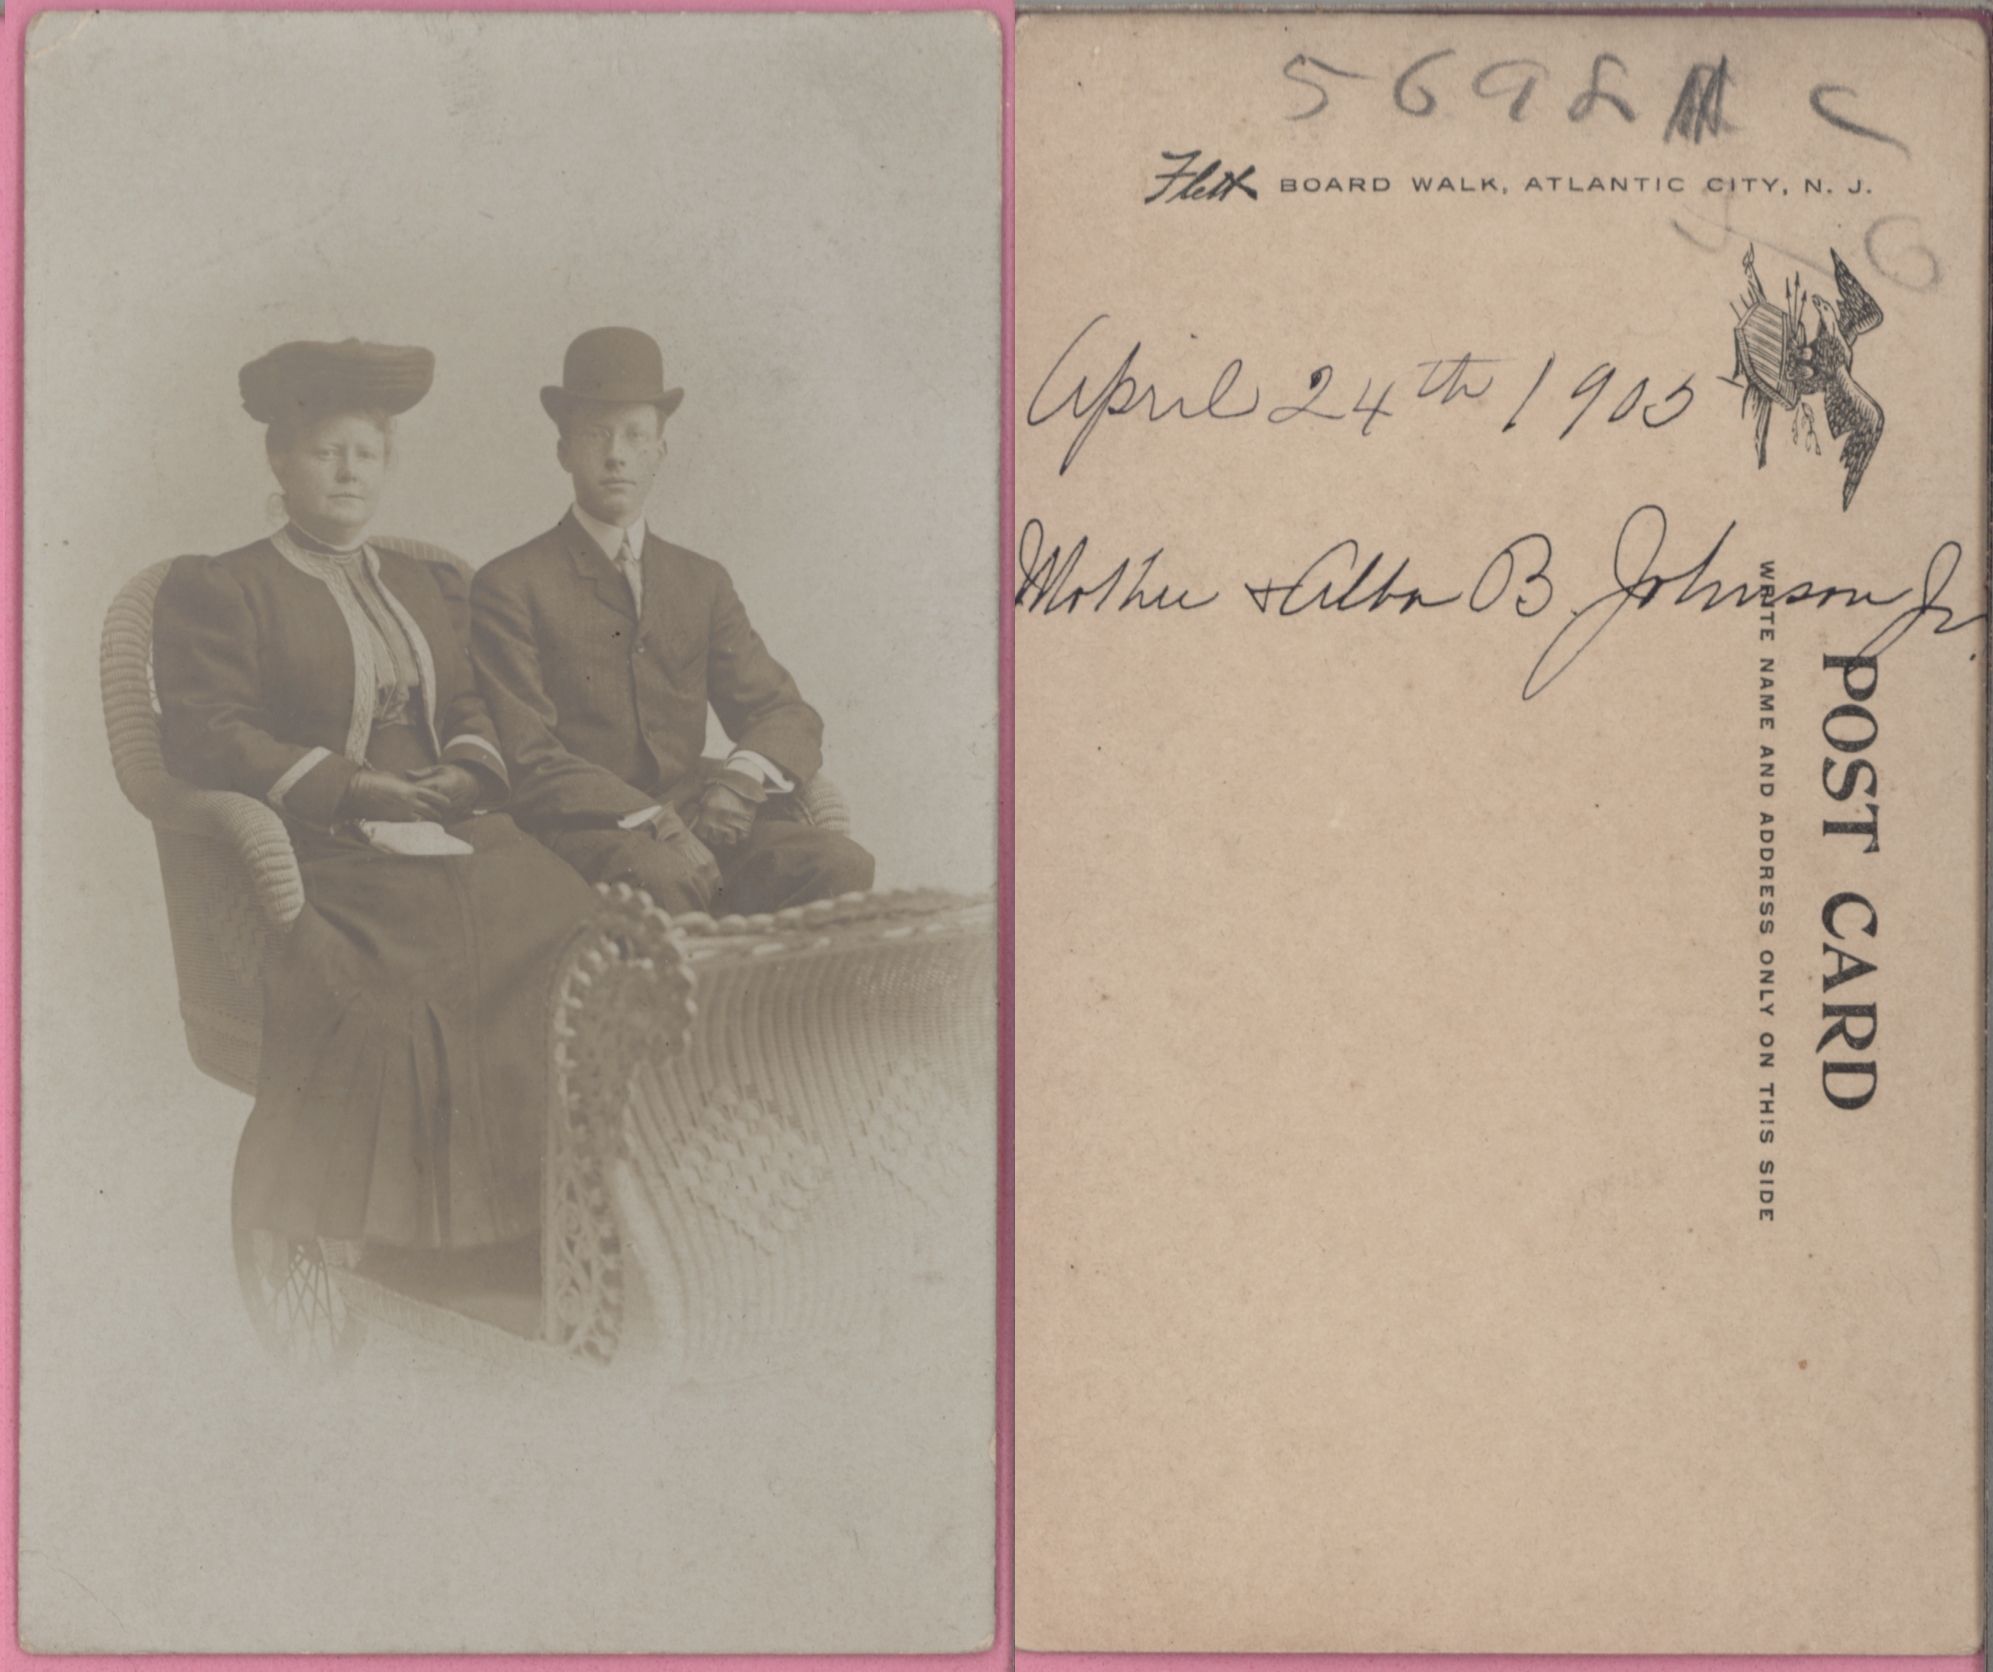 5698 C
Flett BOARD WALK, ATLANTIC CITY, N. J.
April 24th 1905
Mother & Alba B. Johnson Jr.
POST CARD
WRITE NAME AND ADDRESS ONLY ON THIS SIDE